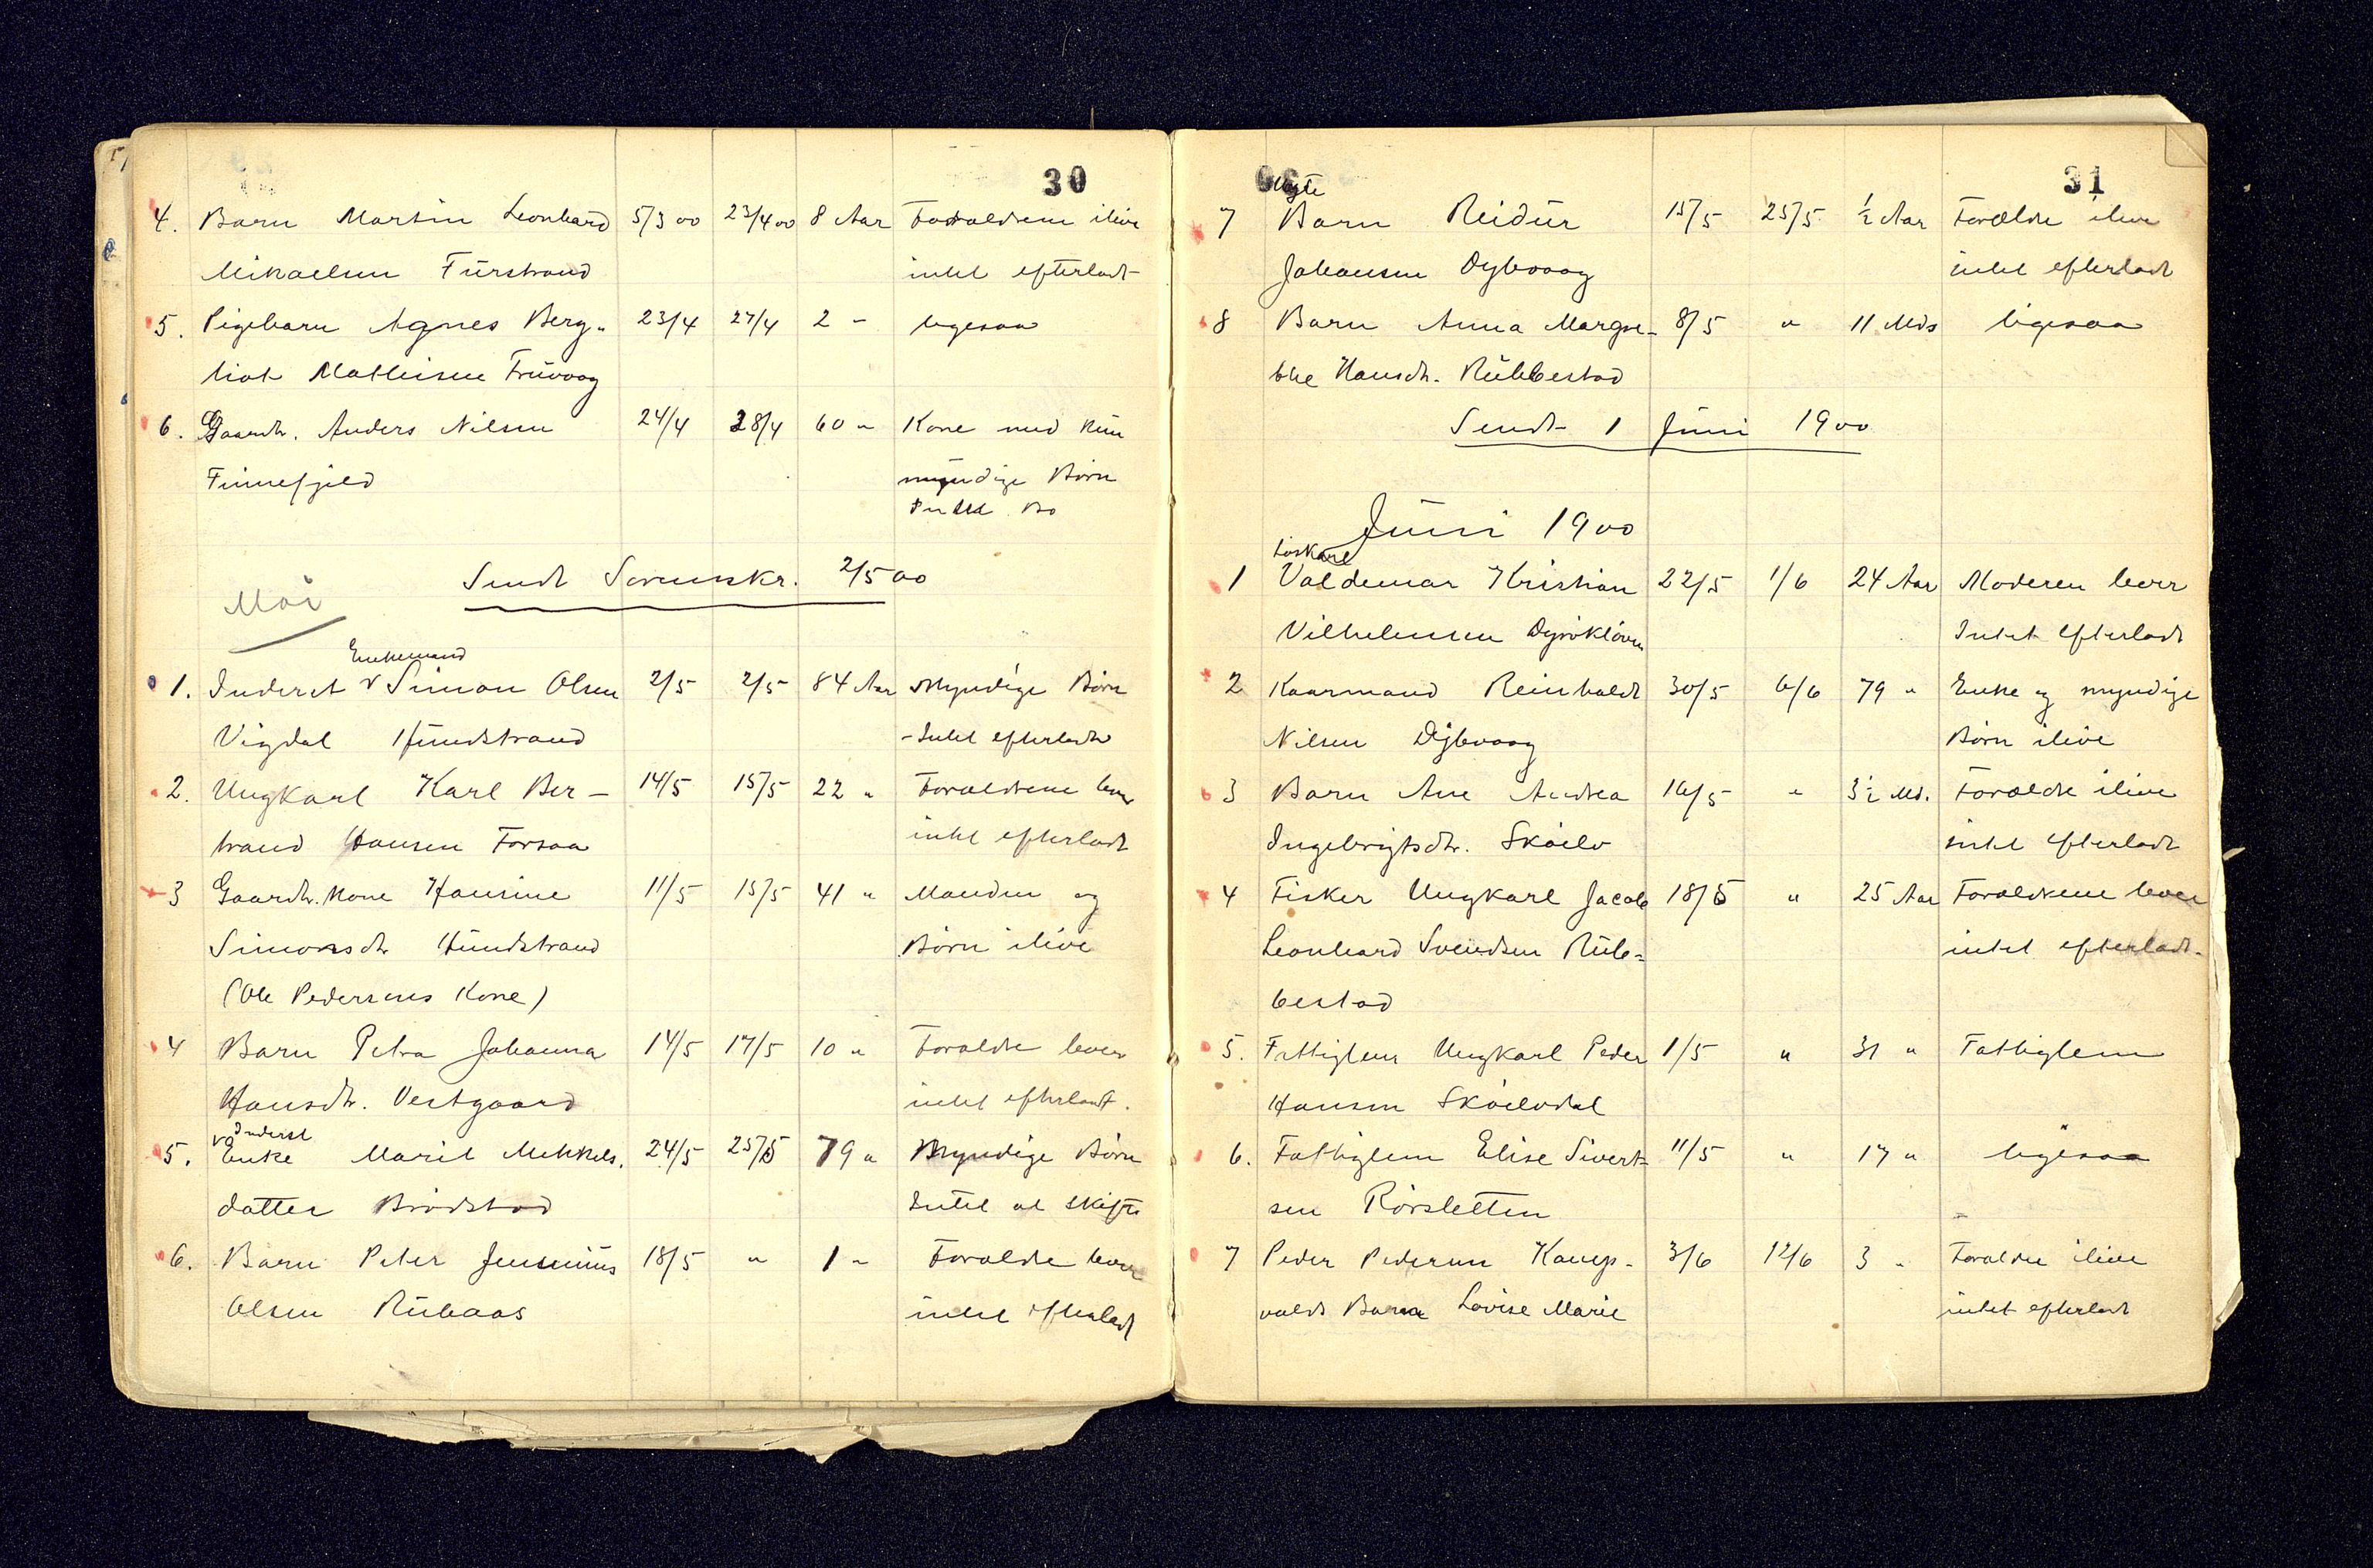 30
4. Barn Martin Leonhard 5/3 00 23/4 00 8 Aar Forældrene ilive
Mikaelsen Furstrand intet efterladt
5. Pigebarn Agnes Berg- 23/4 27/4 2 - ligesaa
liot Mathisen Truvaag
6. Gaardb. Anders Nilsen 24/4 28/4 60 " Kone med kun
Finnefjeld myndige Børn
Bo
Sendt Sorenskr. 2/5 00
Mai
Enkemand
1. Inderst v Simon Olsen 2/5 2/5 84 Aar Myndige Børn
Vigdal Hundstrand - Intet efterladt
2. Ungkarl Karl Ber- 14/5 15/5 22 " Forældrene lever
trand Hansen Forsaa intet efterladt
3 Gaardb. Kone Hansine 11/5 15/5 41 " Manden og
Simonsdt Hundstrand Børn ilive
(Ole Pedersens Kone)
4 Barn Petra Johanna 14/5 17/5 10 " Forældre lever
Hansdtr. Vestgaard intet efterladt.
Inderst
5. Enke Marit Mikkels. 24/5 25/5 79 " Myndige Børn
datter Brødstad Intet at skifte
6. Barn Peter Jensenius 18/5 " 1 - Forældre lever
Olsen Rubaas intet efterladt
31
Uægte
7 Barn Reidur 15/5 25/5 ½ Aar Forældre ilive
Johansen Dybvaag intet efterladt
8 Barn Anna Margre- 8/5 " 11 Mds ligesaa
the Hansdtr. Rubbestad
Sendt 1 Juni 1900
Juni 1900
Løskarl
1 Valdemar Kristian 22/5 1/6 24 Aar Moderen lever
Vilhelmsen Dyrøkløven Intet efterladt
2 Kaarmand Reinholdt 30/5 6/6 79 " Enke og myndige
Nilsen Dybvaag Børn ilive
3 Barn Ane Andrea 16/5 " 3½ Md. Forældre ilive
Ingebrigtsdtr. Skøelv intet efterladt
4 Fisker Ungkarl Jacob 18/5 " 25 Aar Forældrene lever
Leonhard Svendsen Rub- intet efterladt.
bestad
5. Fattiglem Ungkarl Peder 1/5 " 31 " Fattiglem
Hansen Skøelvdal
6. Fattiglem Elise Sivert- 11/5 " 17 " ligesaa
sen Rørsletten
7 Peder Pedersen Kamp- 3/6 12/6 3 " Forældre ilive
volds Barn Lovise Marie intet efterladt